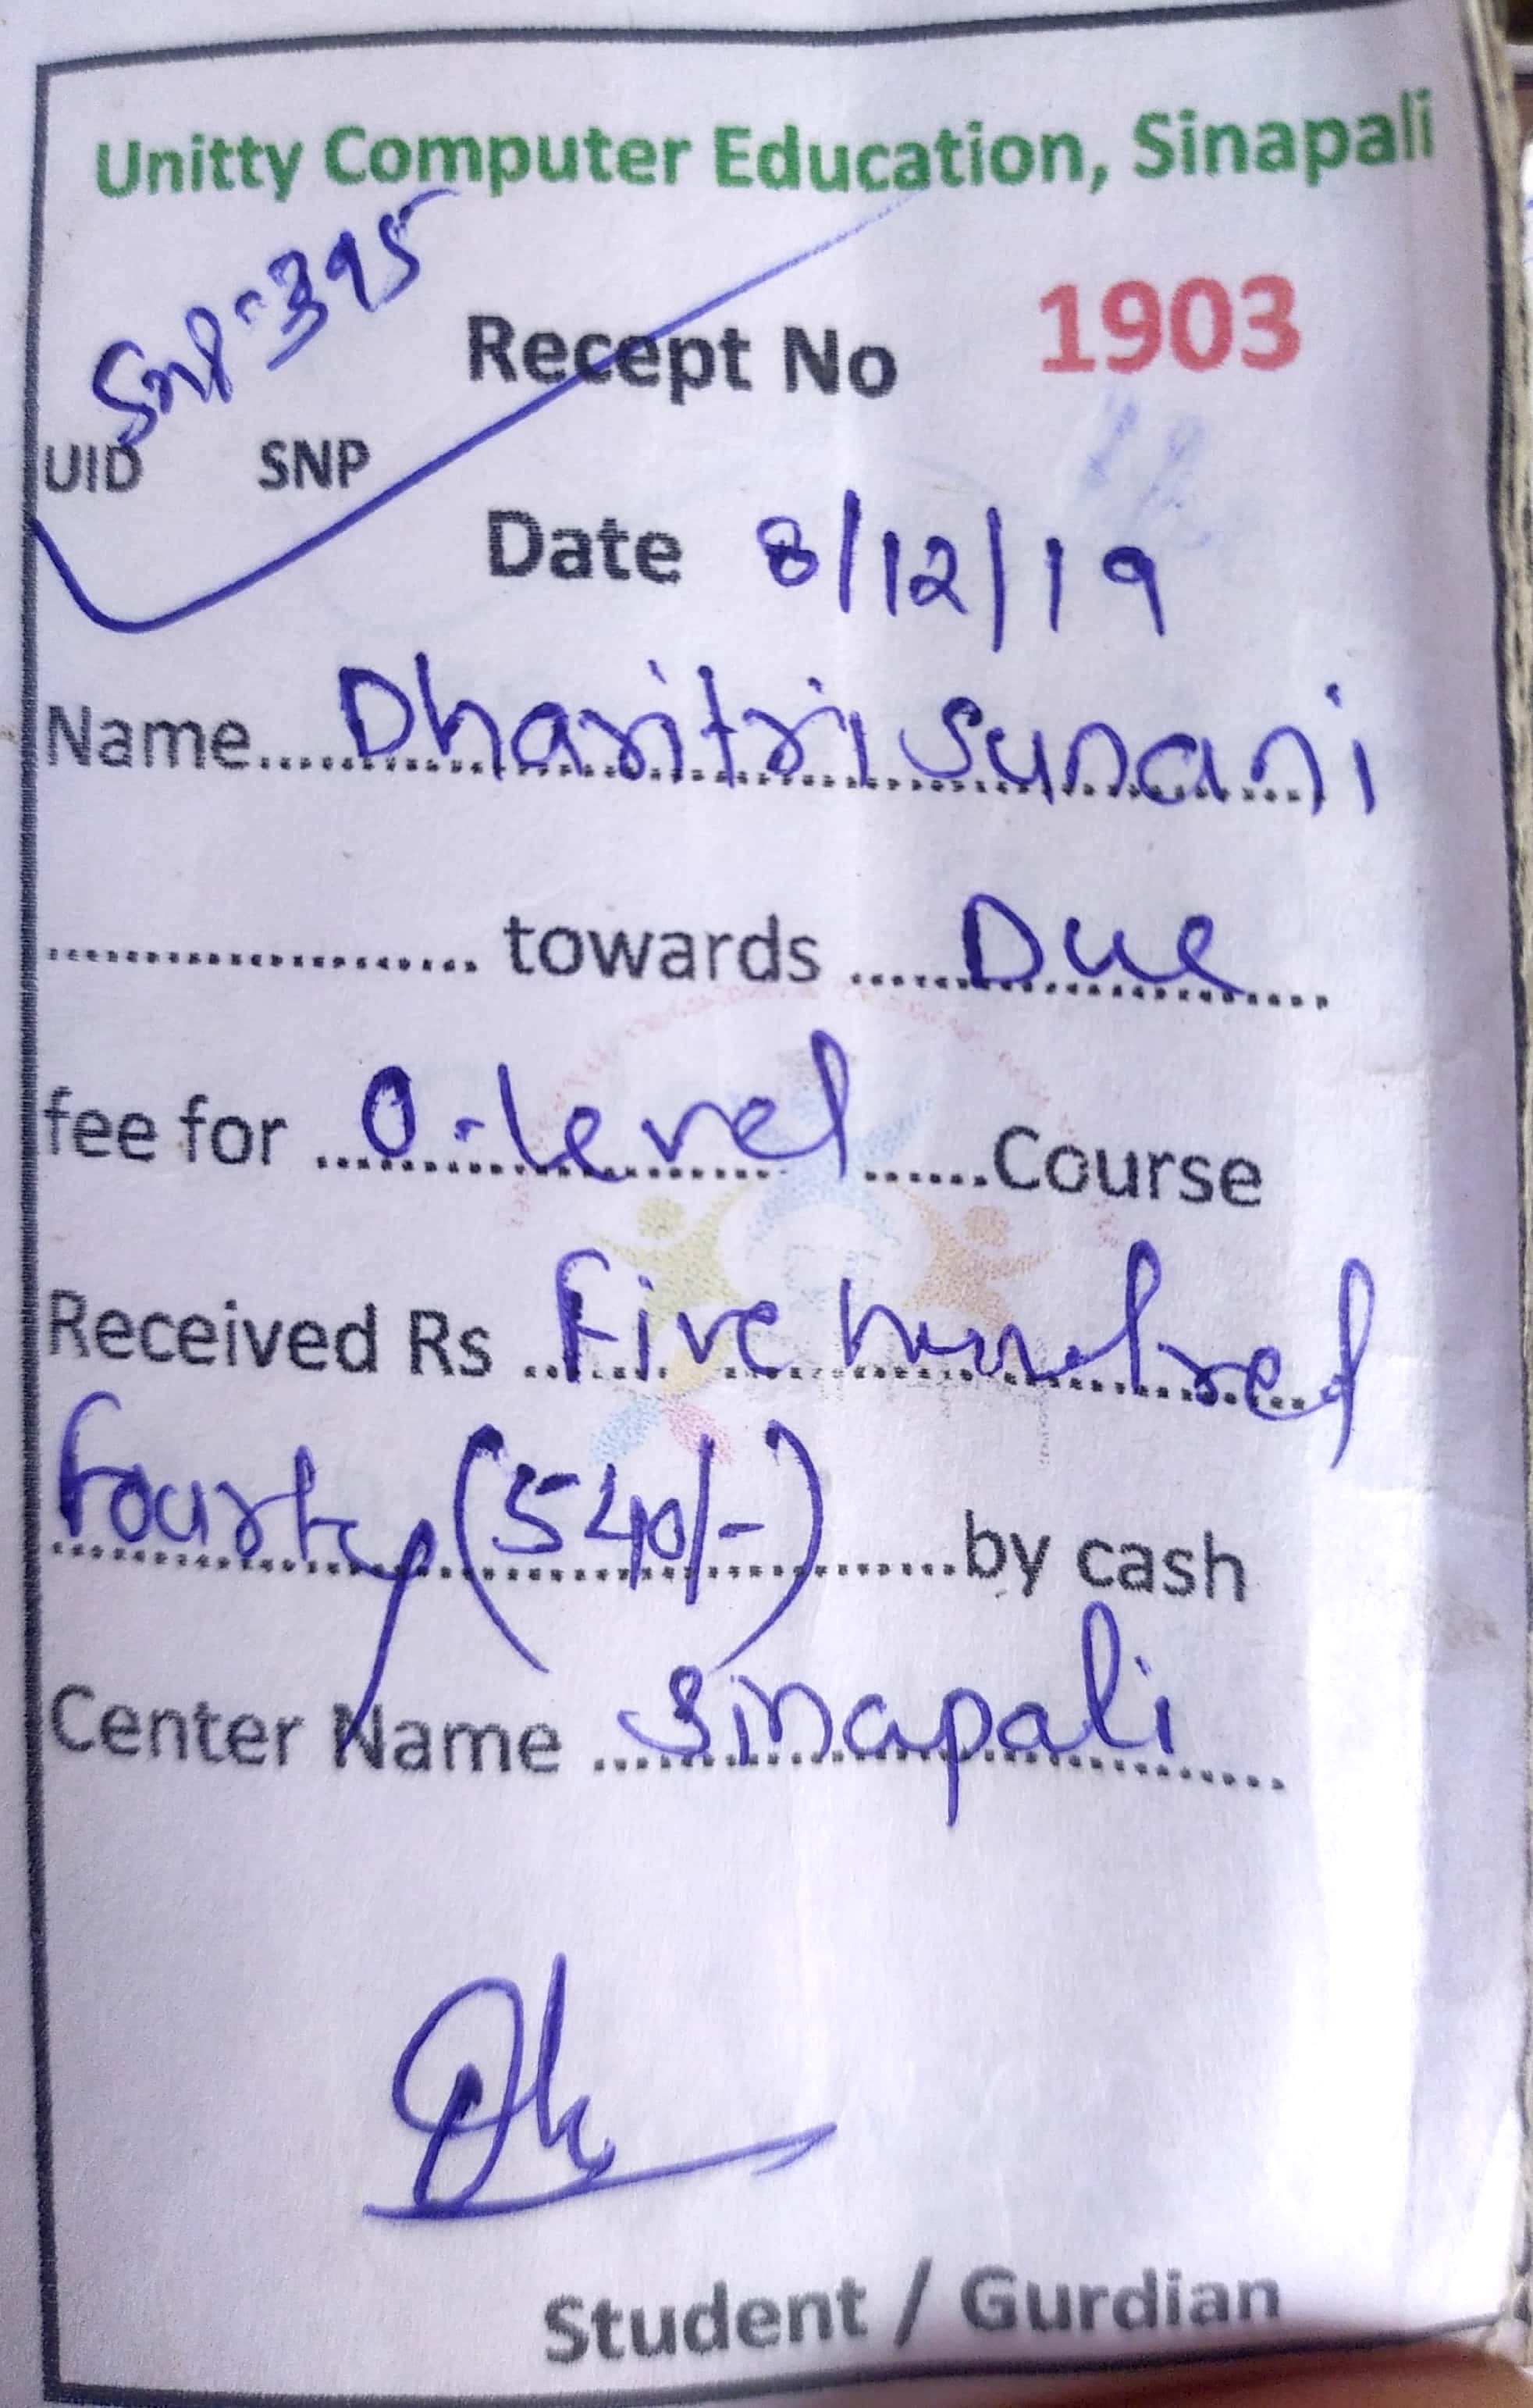 Unitty Computer Education, Sinapali
Snp-395
Recept No 1903
UID SNP
Date 8/12/19
Name....Dharitri Sunani
.................... towards ....Due
fee for ....O-level....Course
Received Rs ....Five hundred
Fourty (540/-)....by cash
Center Name ....Sinapali
Student / Gurdian